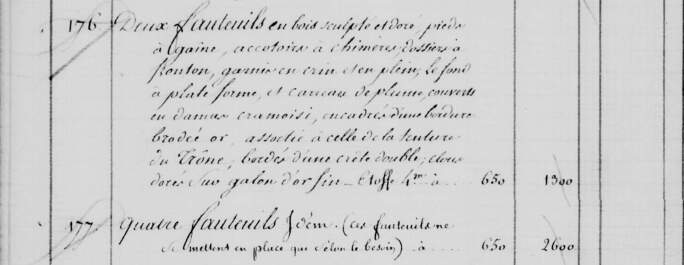 176 Deux fauteuils en bois sculpté et doré, pieds
à gaine, accotoirs à chimères, dossiers à
fronton, garnis en crin et en plein, le fond
à plate forme, et carreau de plume, couverts
en damas cramoisi, encadrés d'une bordure
brodée or, assortie à celle de la tenture
du Trône, bordés d'une crête double, clous
dorés sur galon d'or fin _ Etoffe à .... 650 1300
177. Quatre fauteuils Idem. (ces fauteuils ne
se mettent en place que selon le besoin) _ à .... 650 2600